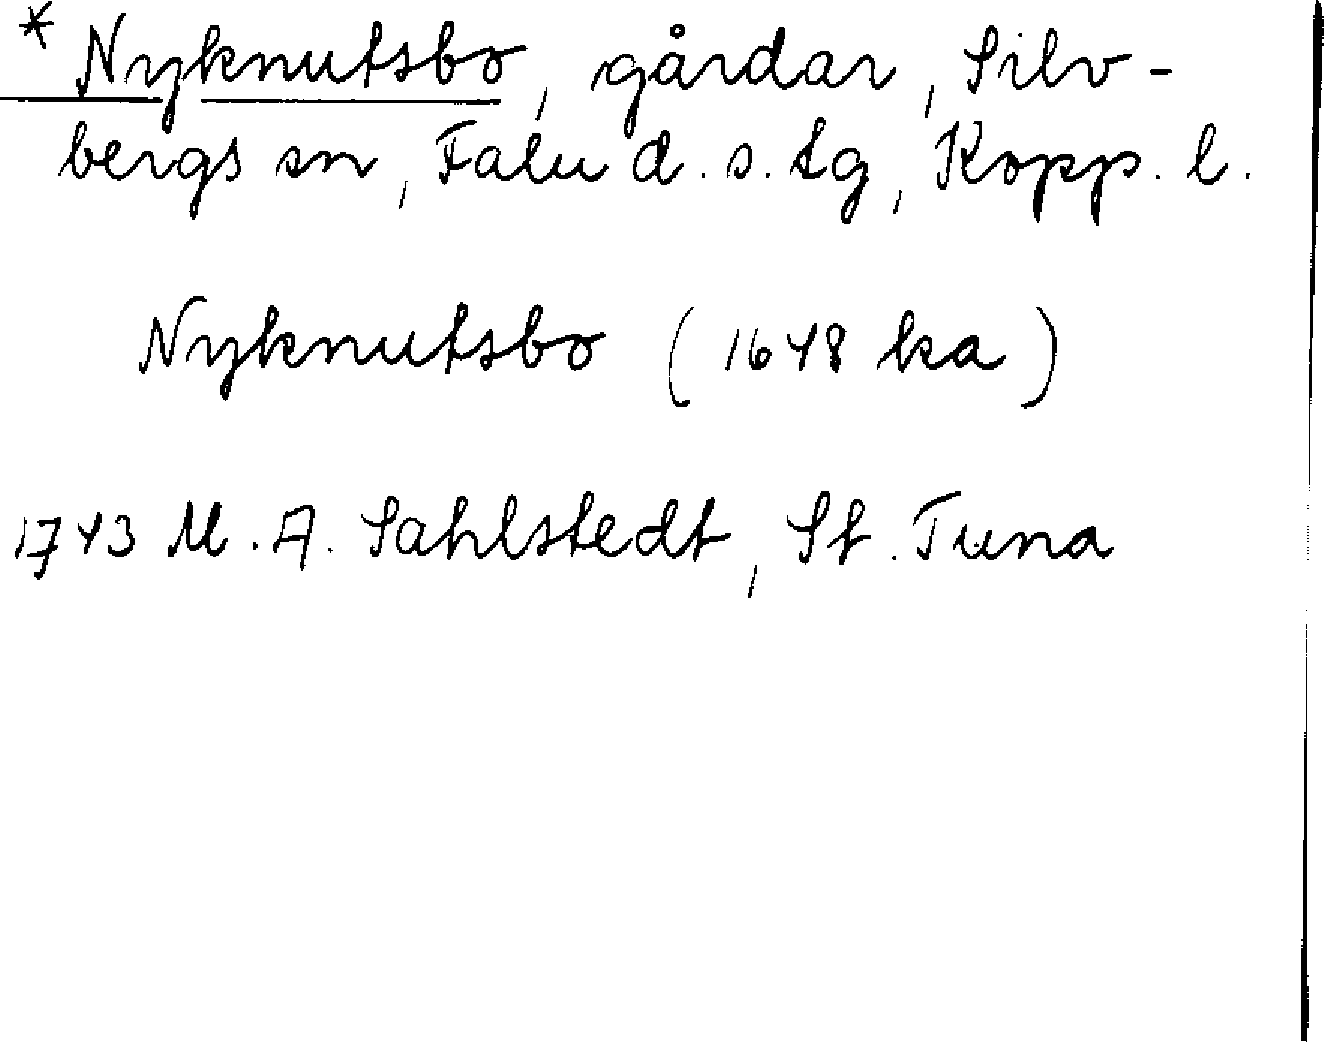 * Nyknutsbo, gårdar, Silv-
bergs sn, Falu d. s. tg, Kopp. l.
Nyknutsbo (1648 ka)
1743 M. A. Sahlstedt, St. Tuna